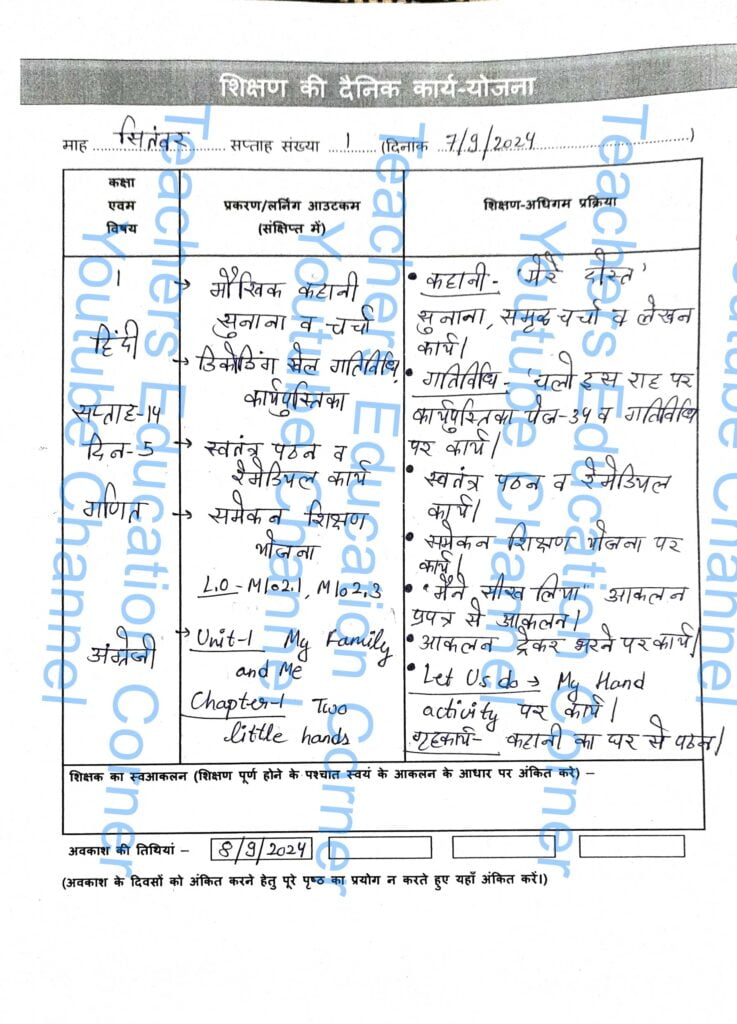 शिक्षण की दैनिक कार्य-योजना
माह सितंबर सप्ताह संख्या 1 (दिनांक 7/9/2024)
कक्षा
एवम
विषय
प्रकरण/लर्निंग आउटकम
(संक्षिप्त में)
शिक्षण-अधिगम प्रक्रिया
1
हिंदी
सप्ताह-14
दिन-5
→ मौखिक कहानी
सुनाना व चर्चा
→ डिकोडिंग खेल गतिविधि,
कार्यपुस्तिका
→ स्वतंत्र पठन व
रेमेडियल कार्य
• कहानी:- 'मेरे दोस्त'
सुनाना, समृद्ध चर्चा व लेखन
कार्य।
• गतिविधि- 'चलो इस राह पर
कार्यपुस्तिका पेज-34 व गतिविधि
पर कार्य।
• स्वतंत्र पठन व रेमेडियल
कार्य।
गणित
→ समेकन शिक्षण
योजना
L.O-M102.1, M102.3
• समेकन शिक्षण योजना पर
कार्य।
• 'मैंने सीख लिया' आकलन
प्रपत्र से आकलन।
• आकलन ट्रेकर भरने पर कार्य।
अंग्रेजी
→ Unit-1 My Family
and Me
Chapter-1 Two
little hands
• Let Us do → My Hand
activity पर कार्य।
गृहकार्य- कहानी का घर से पठन।
शिक्षक का स्वआकलन (शिक्षण पूर्ण होने के पश्चात स्वयं के आकलन के आधार पर अंकित करे) –
अवकाश की तिथियां – 8/9/2024
(अवकाश के दिवसों को अंकित करने हेतु पूरे पृष्ठ का प्रयोग न करते हुए यहाँ अंकित करें।)
Teachers Education Corner
Youtube Channel
Teachers Education Corner
Youtube Channel
Teachers Education Corner
Youtube Channel